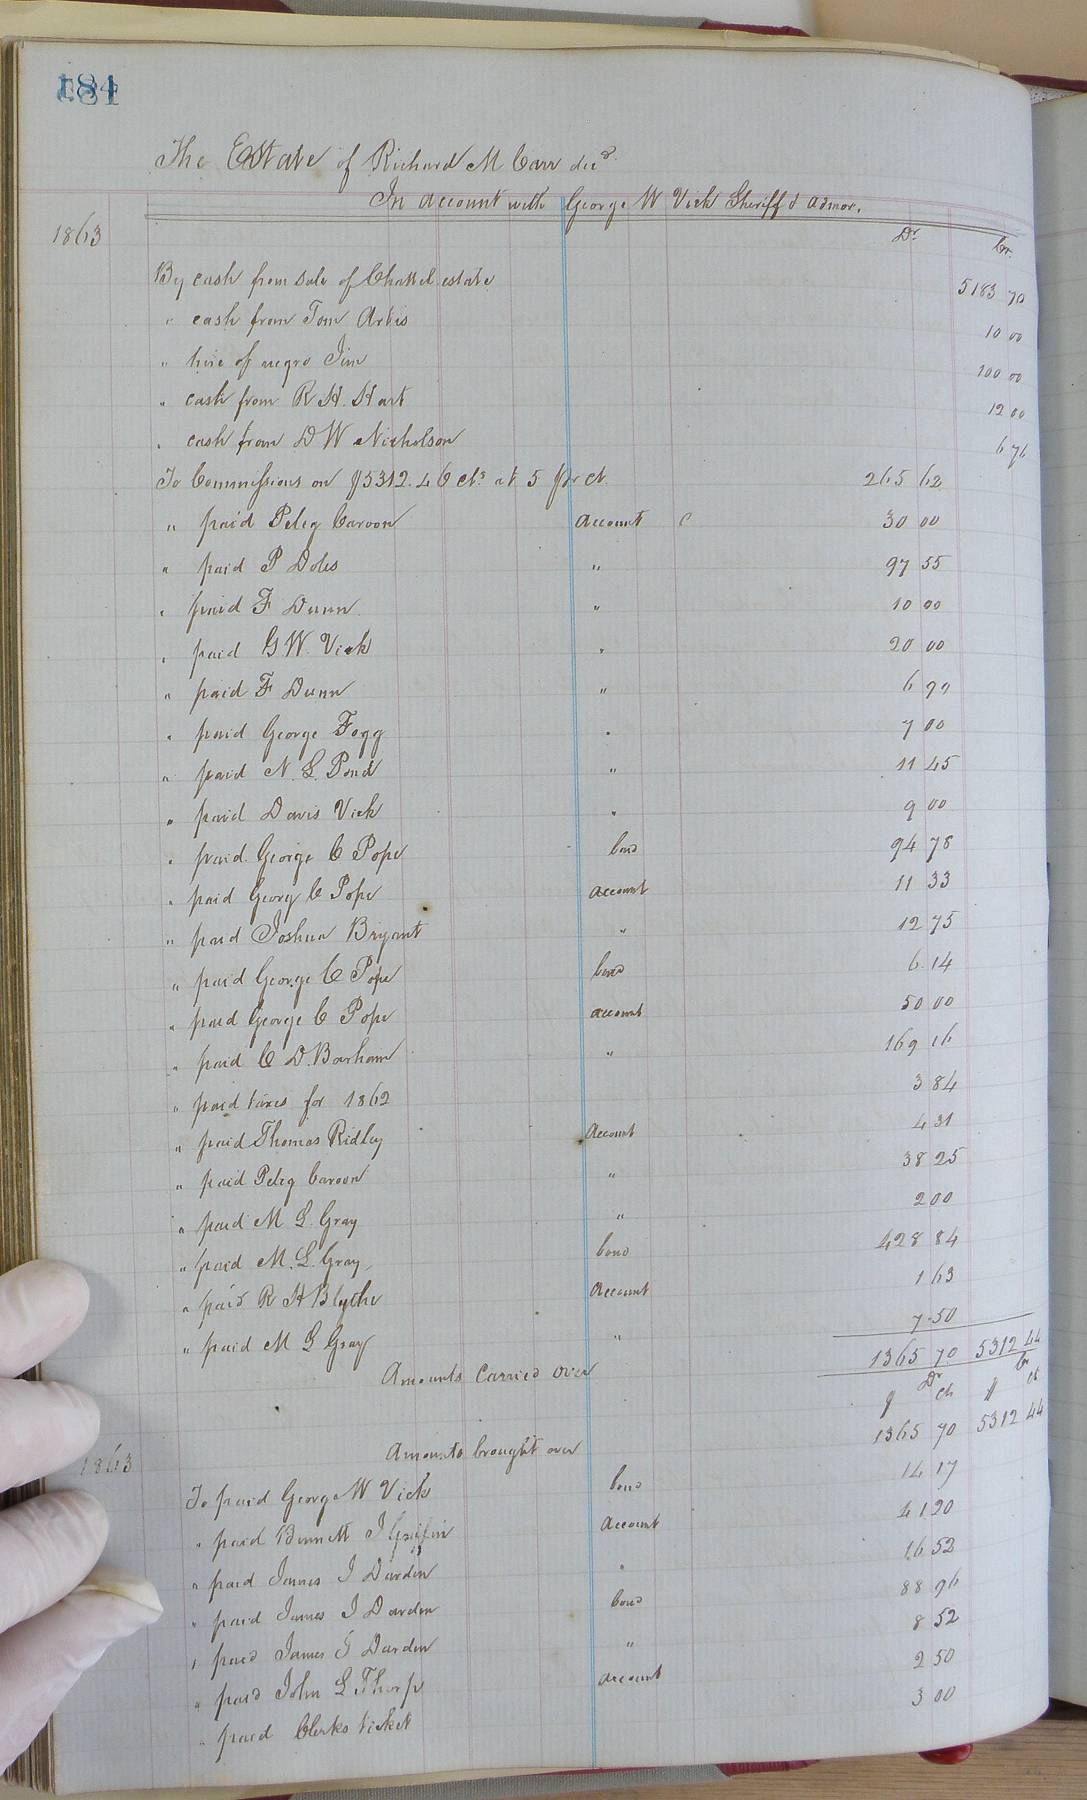 184
The Estate of Richard M Carr decd
In account with George W Vick Sheriff & admor.
1863 Dr. Cr.
By cash from sale of Chattel estate 5183 70
" cash from Tom Artis 10 00
" hire of negro Jim 100 00
" cash from R H. Hart 12 00
" cash from D W Nicholson 6 76
To Commissions on $5312.46 cts at 5 pr ct. 265 62
" paid Peleg Caroon account 30 00
" paid P Doles " 97 55
" paid F Dunn " 10 00
" paid G W. Vick " 20 00
" paid F Dunn " 6 99
" paid George Fogg " 7 00
" paid N. L. Pond " 11 45
" paid Davis Vick " 9 00
" paid George C Pope bond 94 78
" paid Georg C Pope account 11 33
" paid Joshua Bryant " 12 75
" paid George C Pope bond 6 14
" paid George C Pope account 50 00
" paid C D. Barham " 169 16
" paid taxes for 1862 3 84
" paid Thomas Ridley account 4 31
" paid Peleg Caroon " 38 25
" paid M L. Gray " 2 00
" paid M. L. Gray bond 428 84
" paid R H Blythe account 1 63
" paid M L Gray " 7.50
Amounts carried over 1365 70 5312 44
$ Dr cts $ Cr ct
1863 Amounts brought over 1365 70 5312 44
To paid George W Vick bond 14 17
" paid Bennett J Griffin account 41 20
" paid James J Darden " 16 52
" paid James J Darden bond 88 96
" paid James J Darden " 8 52
" paid John L Thorp account 2 50
" paid Clerks ticket 3 00